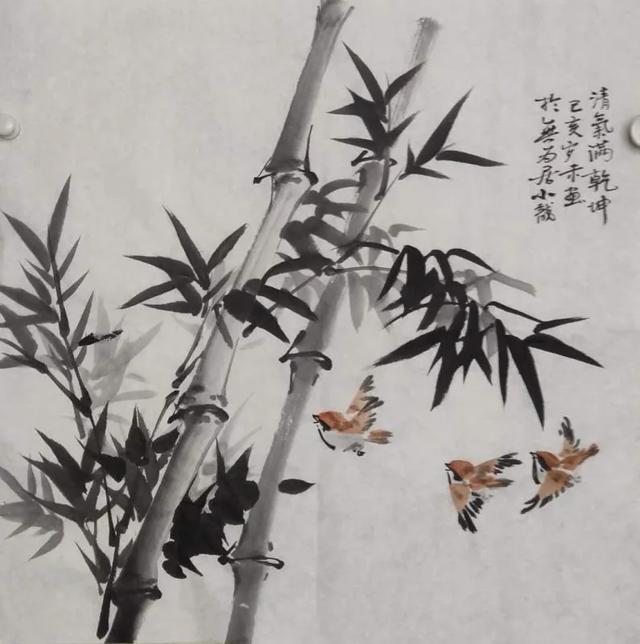 清氣滿乾坤
己亥岁末画
於無为居小龍